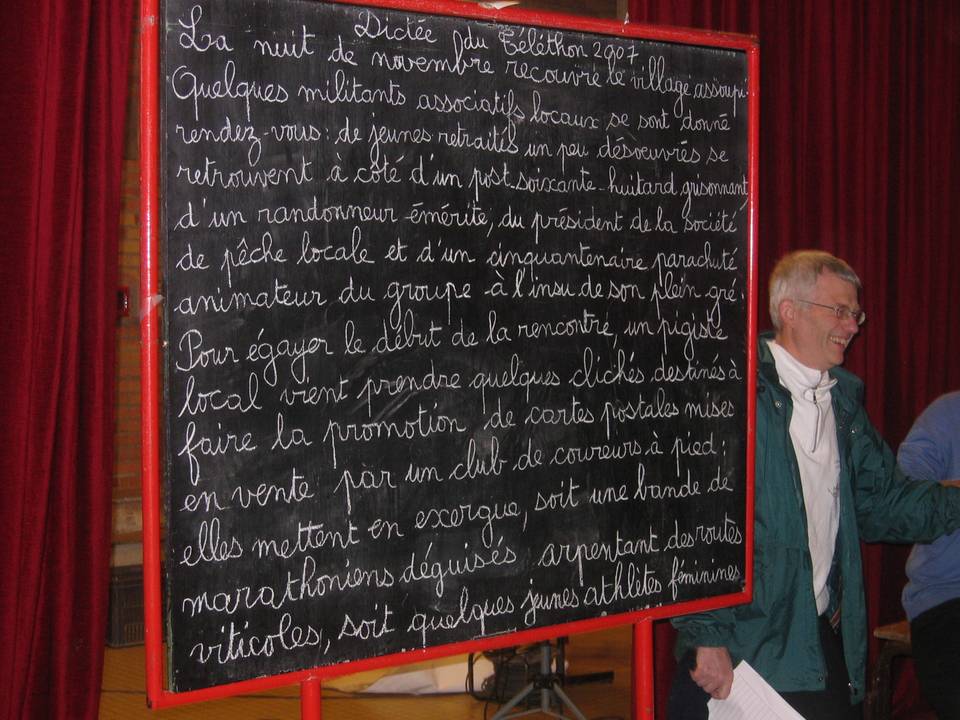 Dictée du Téléthon 2007
La nuit de novembre recouvre le village assoupi.
Quelques militants associatifs locaux se sont donné
rendez-vous : de jeunes retraités un peu désoeuvrés se
retrouvent à côté d'un post-soixante-huitard grisonnant,
d'un randonneur émérite, du président de la société
de pêche locale et d'un cinquantenaire parachuté
animateur du groupe à l'insu de son plein gré.
Pour égayer le début de la rencontre, un pigiste
local vient prendre quelques clichés destinés à
faire la promotion de cartes postales mises
en vente par un club de coureurs à pied :
elles mettent en exergue, soit une bande de
marathoniens déguisés arpentant des routes
viticoles, soit quelques jeunes athlètes féminines